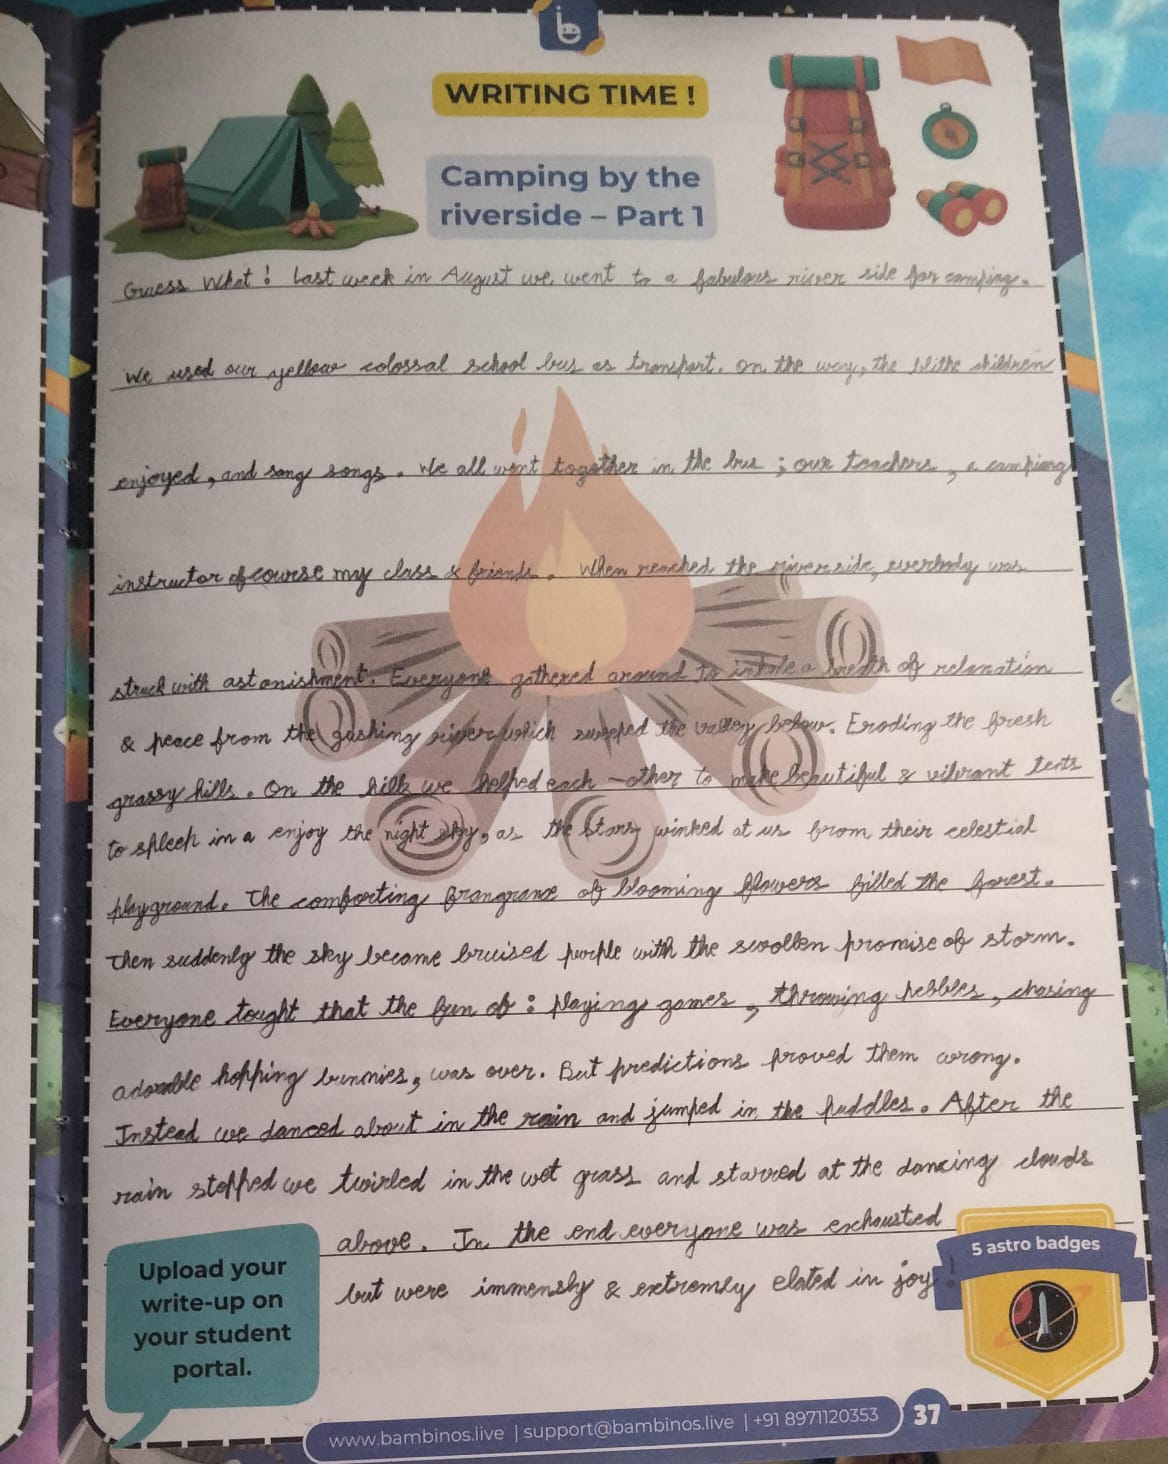 WRITING TIME !
Camping by the
riverside – Part 1
Guess What! Last week in August we went to a fabulous river side for camping.
We used our yellow colossal school bus as transport. On the way, the blithe children
enjoyed, and sang songs. We all went together in the bus ; our teachers, a camping
instructor of course my class & friends. When reached the riverside, everbody was
struck with astonishment. Everyone gathered around to inhale a breath of relaxation
& peace from the gushing river which sweeped the valley below. Eroding the fresh
grassy hills. On the hills we helped each-other to make beautiful & vibrant tents
to spleep in a enjoy the night sky, as the stars winked at us from their celestial
playground. The comforting frangrance of blooming flowers filled the forest.
Then suddenly the sky become bruised purple with the swollen promise of storm.
Everyone tought that the fun of : playing games, throwing pebbles, chasing
adorable hopping bunnies, was over. But predictions proved them wrong.
Instead we danced about in the rain and jumped in the puddles. After the
rain stopped we twirled in the wet grass and starred at the dancing clouds
above. In the end everyone was exhausted
but were immensly & extremly elated in joy!
Upload your
write-up on
your student
portal.
5 astro badges
www.bambinos.live | support@bambinos.live | +91 8971120353
37